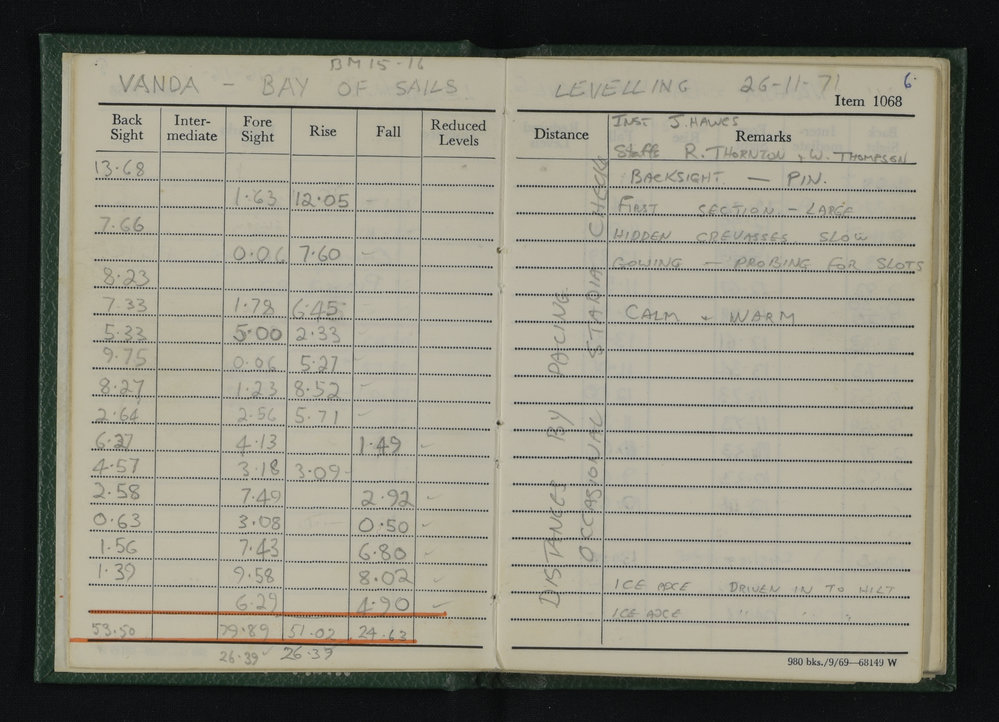 BM 15-16
VANDA - BAY OF SAILS
Back Sight Inter-mediate Fore Sight Rise Fall Reduced Levels
13.68
1.63 12.05
7.66
0.06 7.60
8.23
7.33 1.78 6.45
5.33 5.00 2.33
9.75 0.06 5.27
8.27 1.23 8.52
2.64 2.56 5.71
6.27 4.13 1.49
4.57 3.18 3.09
2.58 7.49 2.92
0.63 3.08 0.50
1.56 7.43 6.80
1.39 9.58 8.02
6.29 4.90
53.50 79.89 51.02 24.63
26.39 26.39
LEVELLING 26-11-71 6.
Item 1068
Distance Remarks
INST J. HAWES
Staffs R. THORNTON & W. THOMPSON
BACKSIGHT — PIN.
FIRST SECTION - LARGE
HIDDEN CREVASSES SLOW
GOING — PROBING FOR SLOTS
CALM & WARM
DISTANCES BY PACING
OCCASIONAL STADIA CHECKS
ICE AXE DRIVEN IN TO HILT
ICE AXE " " "
980 bks./9/69—68149 W